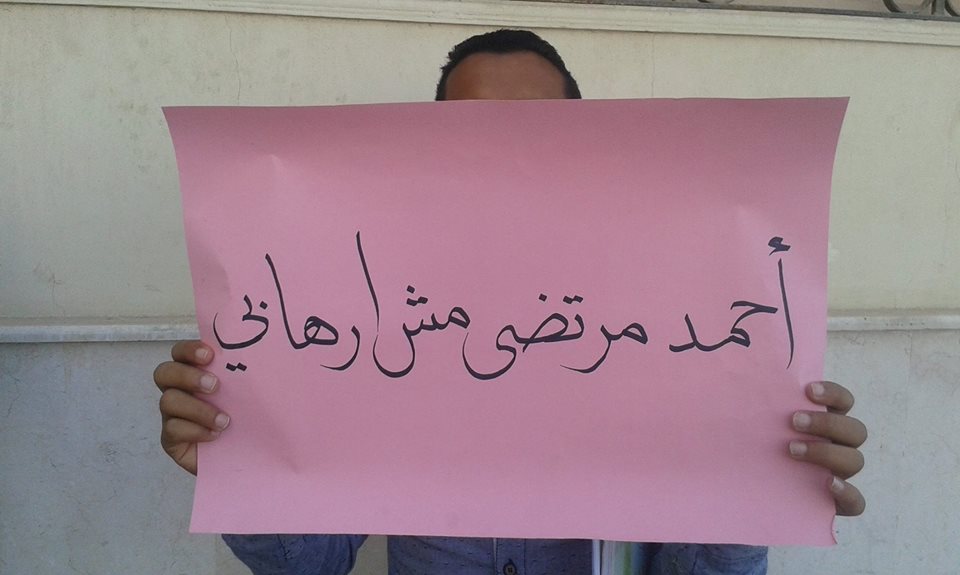 أحمد مرتضى مش ارهابي